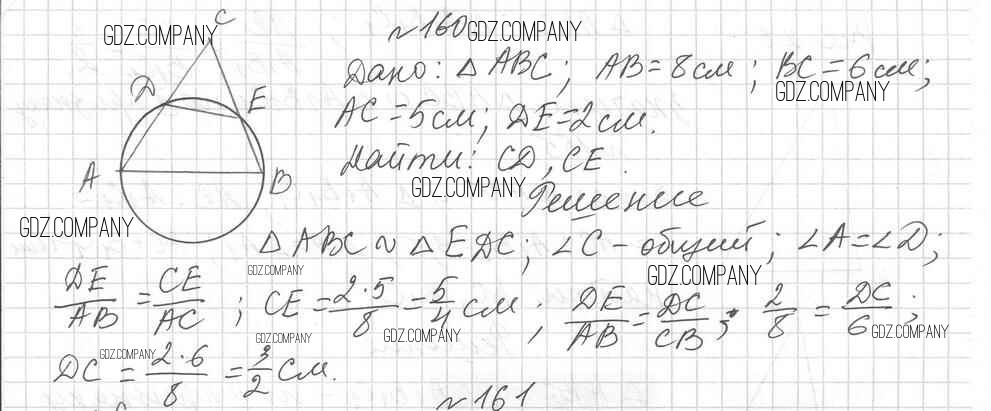 C
GDZ.COMPANY
№160 GDZ.COMPANY
Дано: △ABC; AB = 8 см; BC = 6 см;
GDZ.COMPANY
D E
AC = 5 см; DE = 2 см.
Найти: CD, CE
A B
GDZ.COMPANY
Решение
GDZ.COMPANY
△ABC ~ △EDC; ∠C - общий; ∠A = ∠D;
GDZ.COMPANY GDZ.COMPANY
DE/AB = CE/AC; CE = 2·5/8 = 5/4 см; DE/AB = DC/CB; 2/8 = DC/6;
GDZ.COMPANY GDZ.COMPANY
GDZ.COMPANY GDZ.COMPANY
DC = 2·6/8 = 3/2 см.
№161